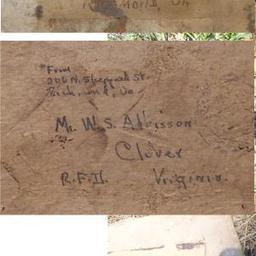 Richmond, VA
From
206 N. Sheppard St.
Richmond, Va
Mr. W. S. Atkisson
Clover
R.F.D. Virginia.